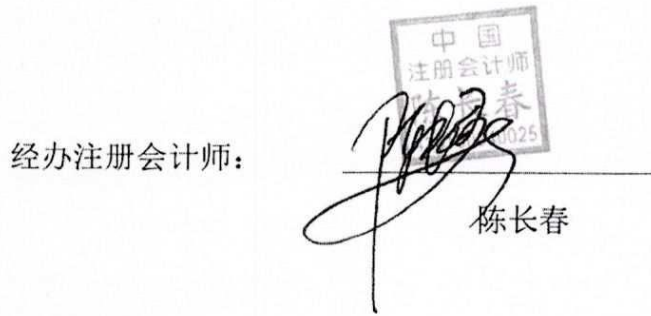 中国
注册会计师
陈长春
0025
经办注册会计师：
陈长春